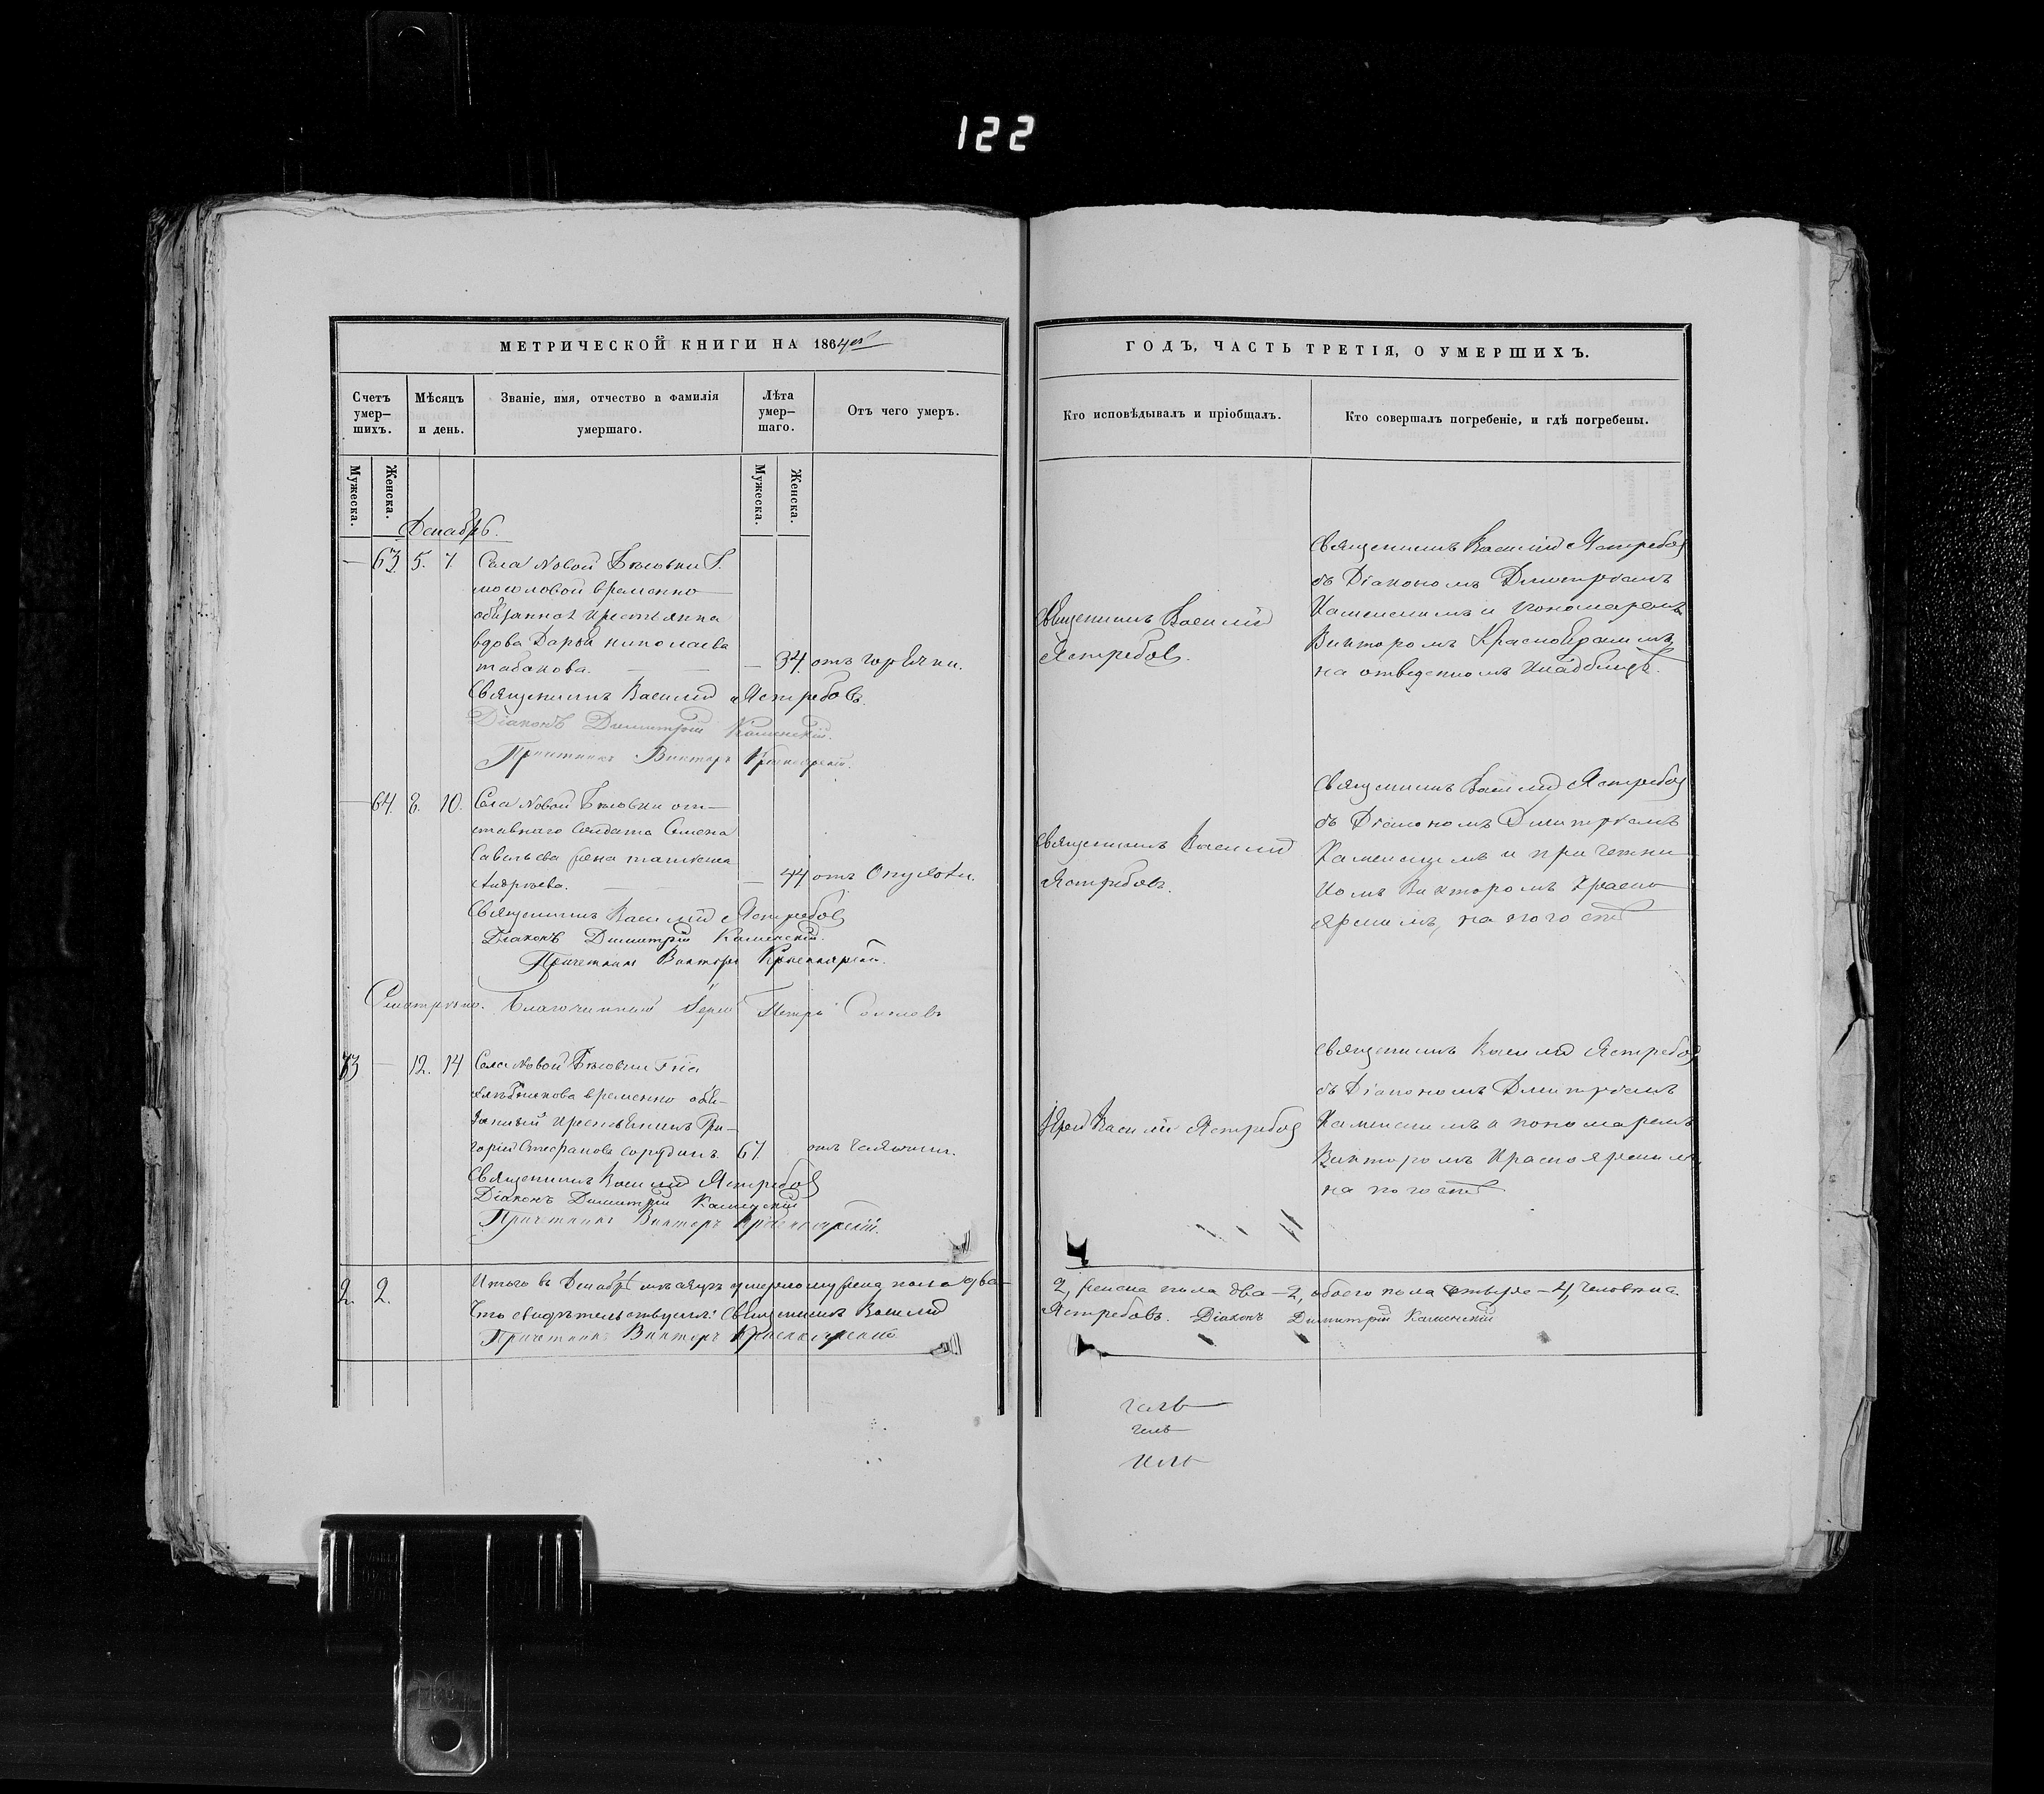 122
МЕТРИЧЕСКОЙ КНИГИ НА 1864ый
Счетъ умер-
шихъ.
Мѣсяцъ
и день.
Званіе, имя, отчество и фамилія
умершаго.
Лѣта
умер-
шаго.
Отъ чего умеръ.
Мужеска.
Женска.
Мужеска.
Женска.
Декабрь.
— 63. 5. 7 Села Новой Бѣловки Г.
временно
обязанная крестьянка
вдова Дарья Николаева
табакова. — — 34. отъ горячки.
Священникъ Василій Ястребовъ.
Діаконъ Димитрій Каменскій.
Причетникъ Викторъ Красноярскій.
— 64. 8. 10. Села Новой Бѣловки от-
ставнаго солдата Семена
Савельева жена
Андреева. — — 44 отъ Опухоли.
Священникъ Василій Ястребовъ
Діаконъ Димитрій Каменскій.
Причетникъ Викторъ Красноярскій.
Смотрѣно. Благочинный Іерей Петръ
73 — 12. 14 Села Новой Бѣловки Гна
временно обя-
занный крестьянинъ Гри-
горій Стефановъ 67 отъ чахотки.
Священникъ Василій Ястребовъ
Діаконъ Димитрій Каменскій
Причетникъ Викторъ Красноярскій.
2. 2. Итого въ Декабрѣ мѣсяцѣ умерло мужеска пола два—
Что свидѣтельствуемъ: Священникъ Василій
Причетникъ Викторъ Красноярскій
ГОДЪ, ЧАСТЬ ТРЕТІЯ, О УМЕРШИХЪ.
Кто исповѣдывалъ и пріобщалъ.
Кто совершалъ погребеніе, и гдѣ погребены.
Священникъ Василій
Ястребовъ.
Священникъ Василій Ястребовъ
съ Діакономъ Димитріемъ
Каменскимъ и Пономаремъ
Викторомъ Красноярскимъ,
на отведенномъ кладбищѣ.
Священникъ Василій
Ястребовъ.
Священникъ Василій Ястребовъ
съ Діакономъ Димитріемъ
Каменскимъ и причетни-
комъ Викторомъ Красно-
ярскимъ, на погостѣ
Іерей Василій Ястребовъ
Священникъ Василій Ястребовъ
съ Діакономъ Димитріемъ
Каменскимъ и пономаремъ
Викторомъ Красноярскимъ
на погостѣ
2, женска пола два—2, обоего пола четыре—4, человѣка.
Ястребовъ. Діаконъ Димитрій Каменскій